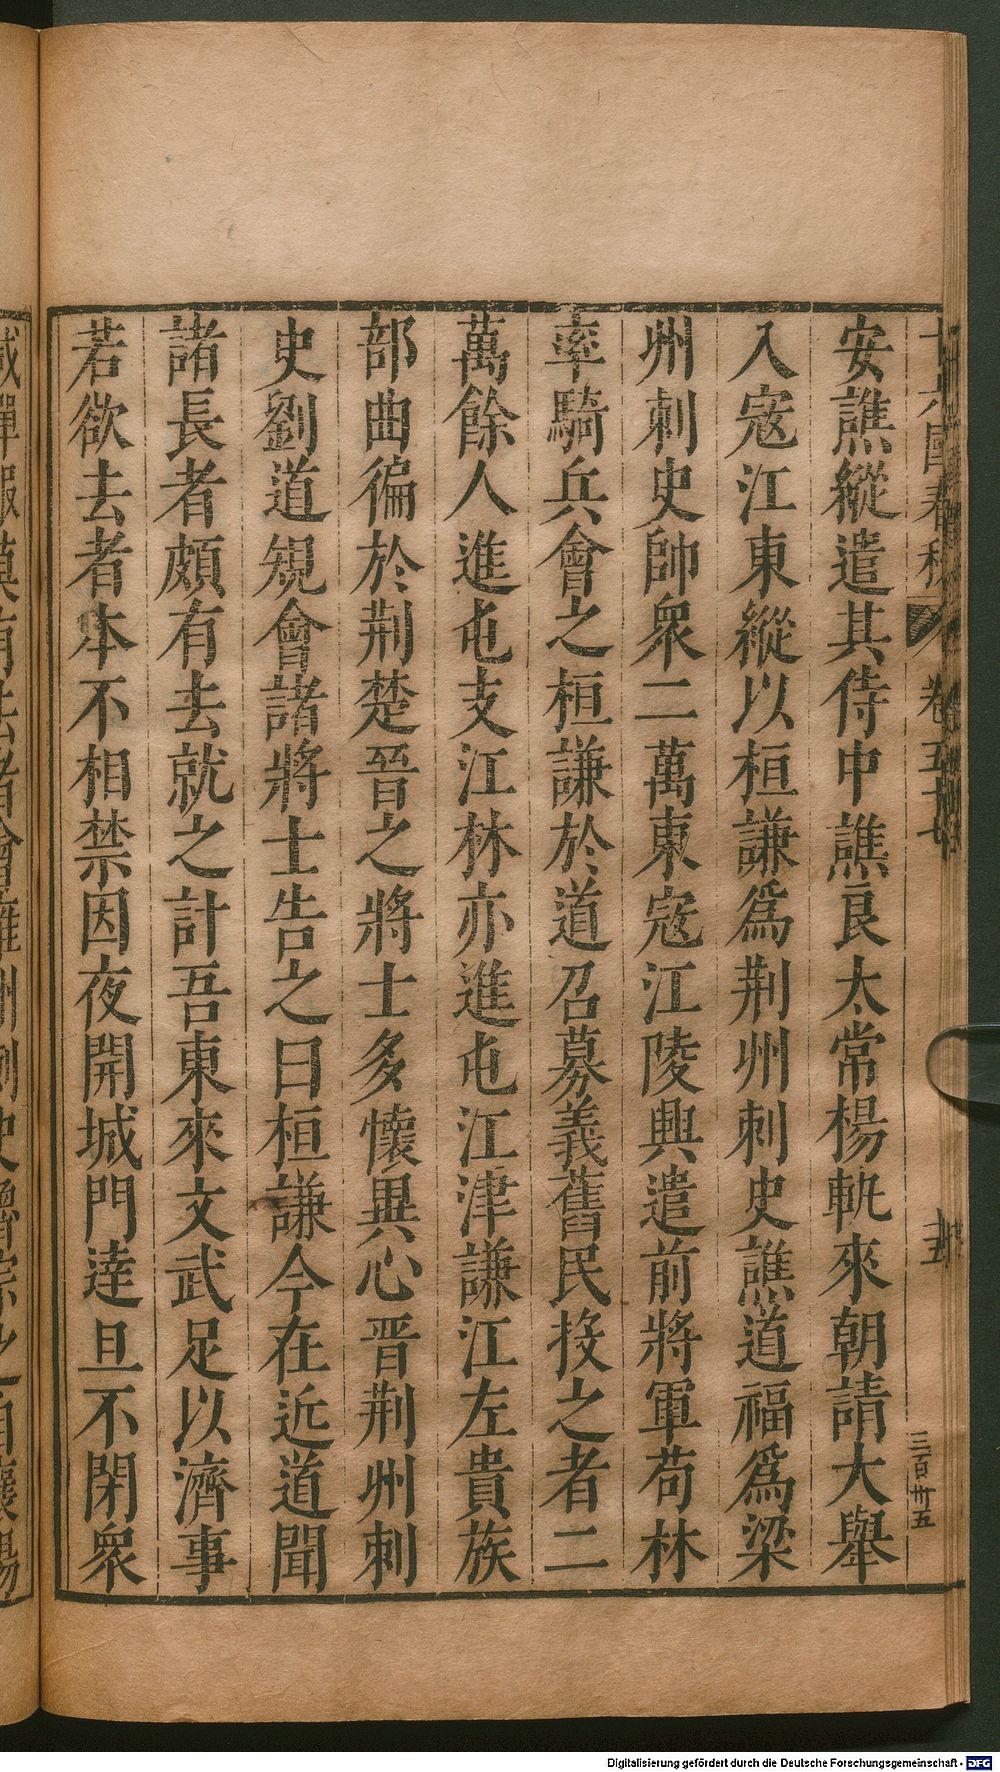 十六國春秋 卷五十七 十五 三百卅五
安譙縱遣其侍中譙良太常楊軌來朝請大舉
入寇江東縱以桓謙爲荆州刺史譙道福爲梁
州刺史帥衆二萬東寇江陵興遣前將軍苟林
率騎兵會之桓謙於道召募義舊民投之者二
萬餘人進屯支江林亦進屯江津謙江左貴族
部曲徧於荆楚晉之將士多懷異心晋荆州刺
史劉道規會諸將士告之曰桓謙今在近道聞
諸長者頗有去就之計吾東來文武足以濟事
若欲去者本不相禁因夜開城門達旦不閉衆
Digitalisierung gefördert durch die Deutsche Forschungsgemeinschaft - DFG